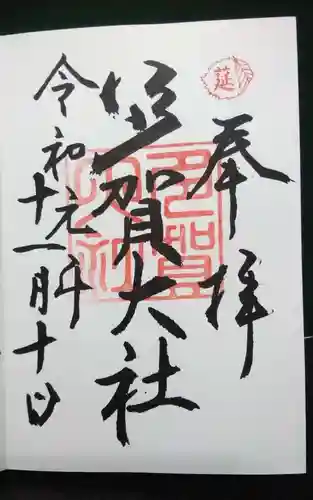 莚
奉拝
多賀大社
多賀
大社
令和元年
十一月十日